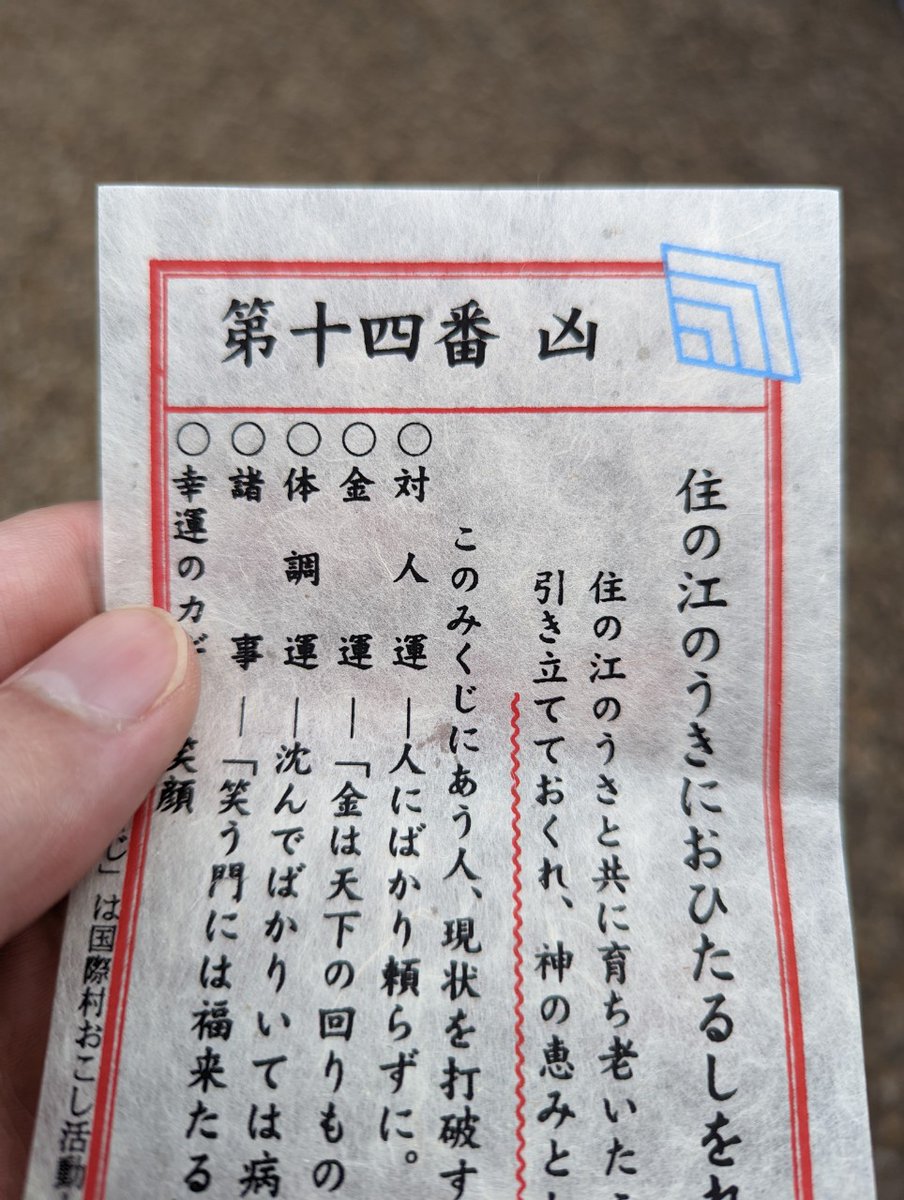 第十四番 凶
住の江のうきにおひたるしをれ
住の江のうさと共に育ち老いた
引き立てておくれ、神の恵みと
このみくじにあう人、現状を打破す
○対人運―人にばかり頼らずに。
○金運―「金は天下の回りもの
○体調運―沈んでばかりいては病
○諸事―「笑う門には福来たる
○幸運のカギ 笑顔
じ」は国際村おこし活動